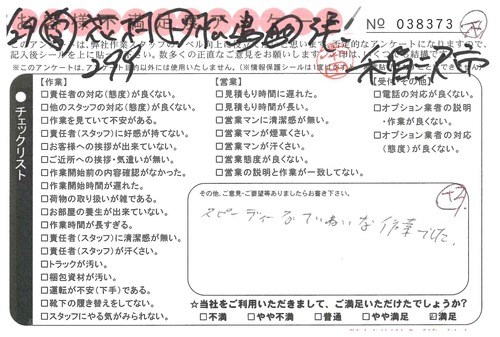 No 038373
このアンケートは、弊社作業スタッフの
記入後シールを上に貼って下さい。数多くの正直なご意見をお願い
※このアンケートは、
【作業】
□責任者の対応(態度)が良くない。
□他のスタッフの対応(態度)が良くない。
□作業を見ていて不安がある。
□責任者(スタッフ)に好感が持てない。
□お客様への挨拶が出来ていない。
□ご近所への挨拶・気遣いが無い。
□作業開始前の内容確認がなかった。
□作業開始時間が遅れた。
□荷物の取り扱いが雑である。
□お部屋の養生が出来ていない。
□作業時間が長すぎる。
□責任者(スタッフ)に清潔感が無い。
□責任者(スタッフ)が汗くさい。
□トラックが汚い。
□梱包資材が汚い。
□運転が不安(下手)である。
□靴下の履き替えをしてない。
□スタッフにやる気がみられない。
【営業】
□見積もり時間に遅れた。
□見積もり時間が長い。
□営業マンに清潔感が無い。
□営業マンが煙草くさい。
□営業マンが汗くさい。
□営業態度が良くない。
□営業の説明と作業が一致してない。
□電話の対応が良くない。
□オプション業者の説明
・作業が良くない。
□オプション業者の対応
(態度)が良くない。
チェックリスト
その他、ご意見・ご要望等ありましたらお書き下さい。
スピーディーなていねいな作業でした。
☆当社をご利用いただきまして、ご満足いただけたでしょうか?
□不満 □やや不満 □普通 □やや満足 ☑満足